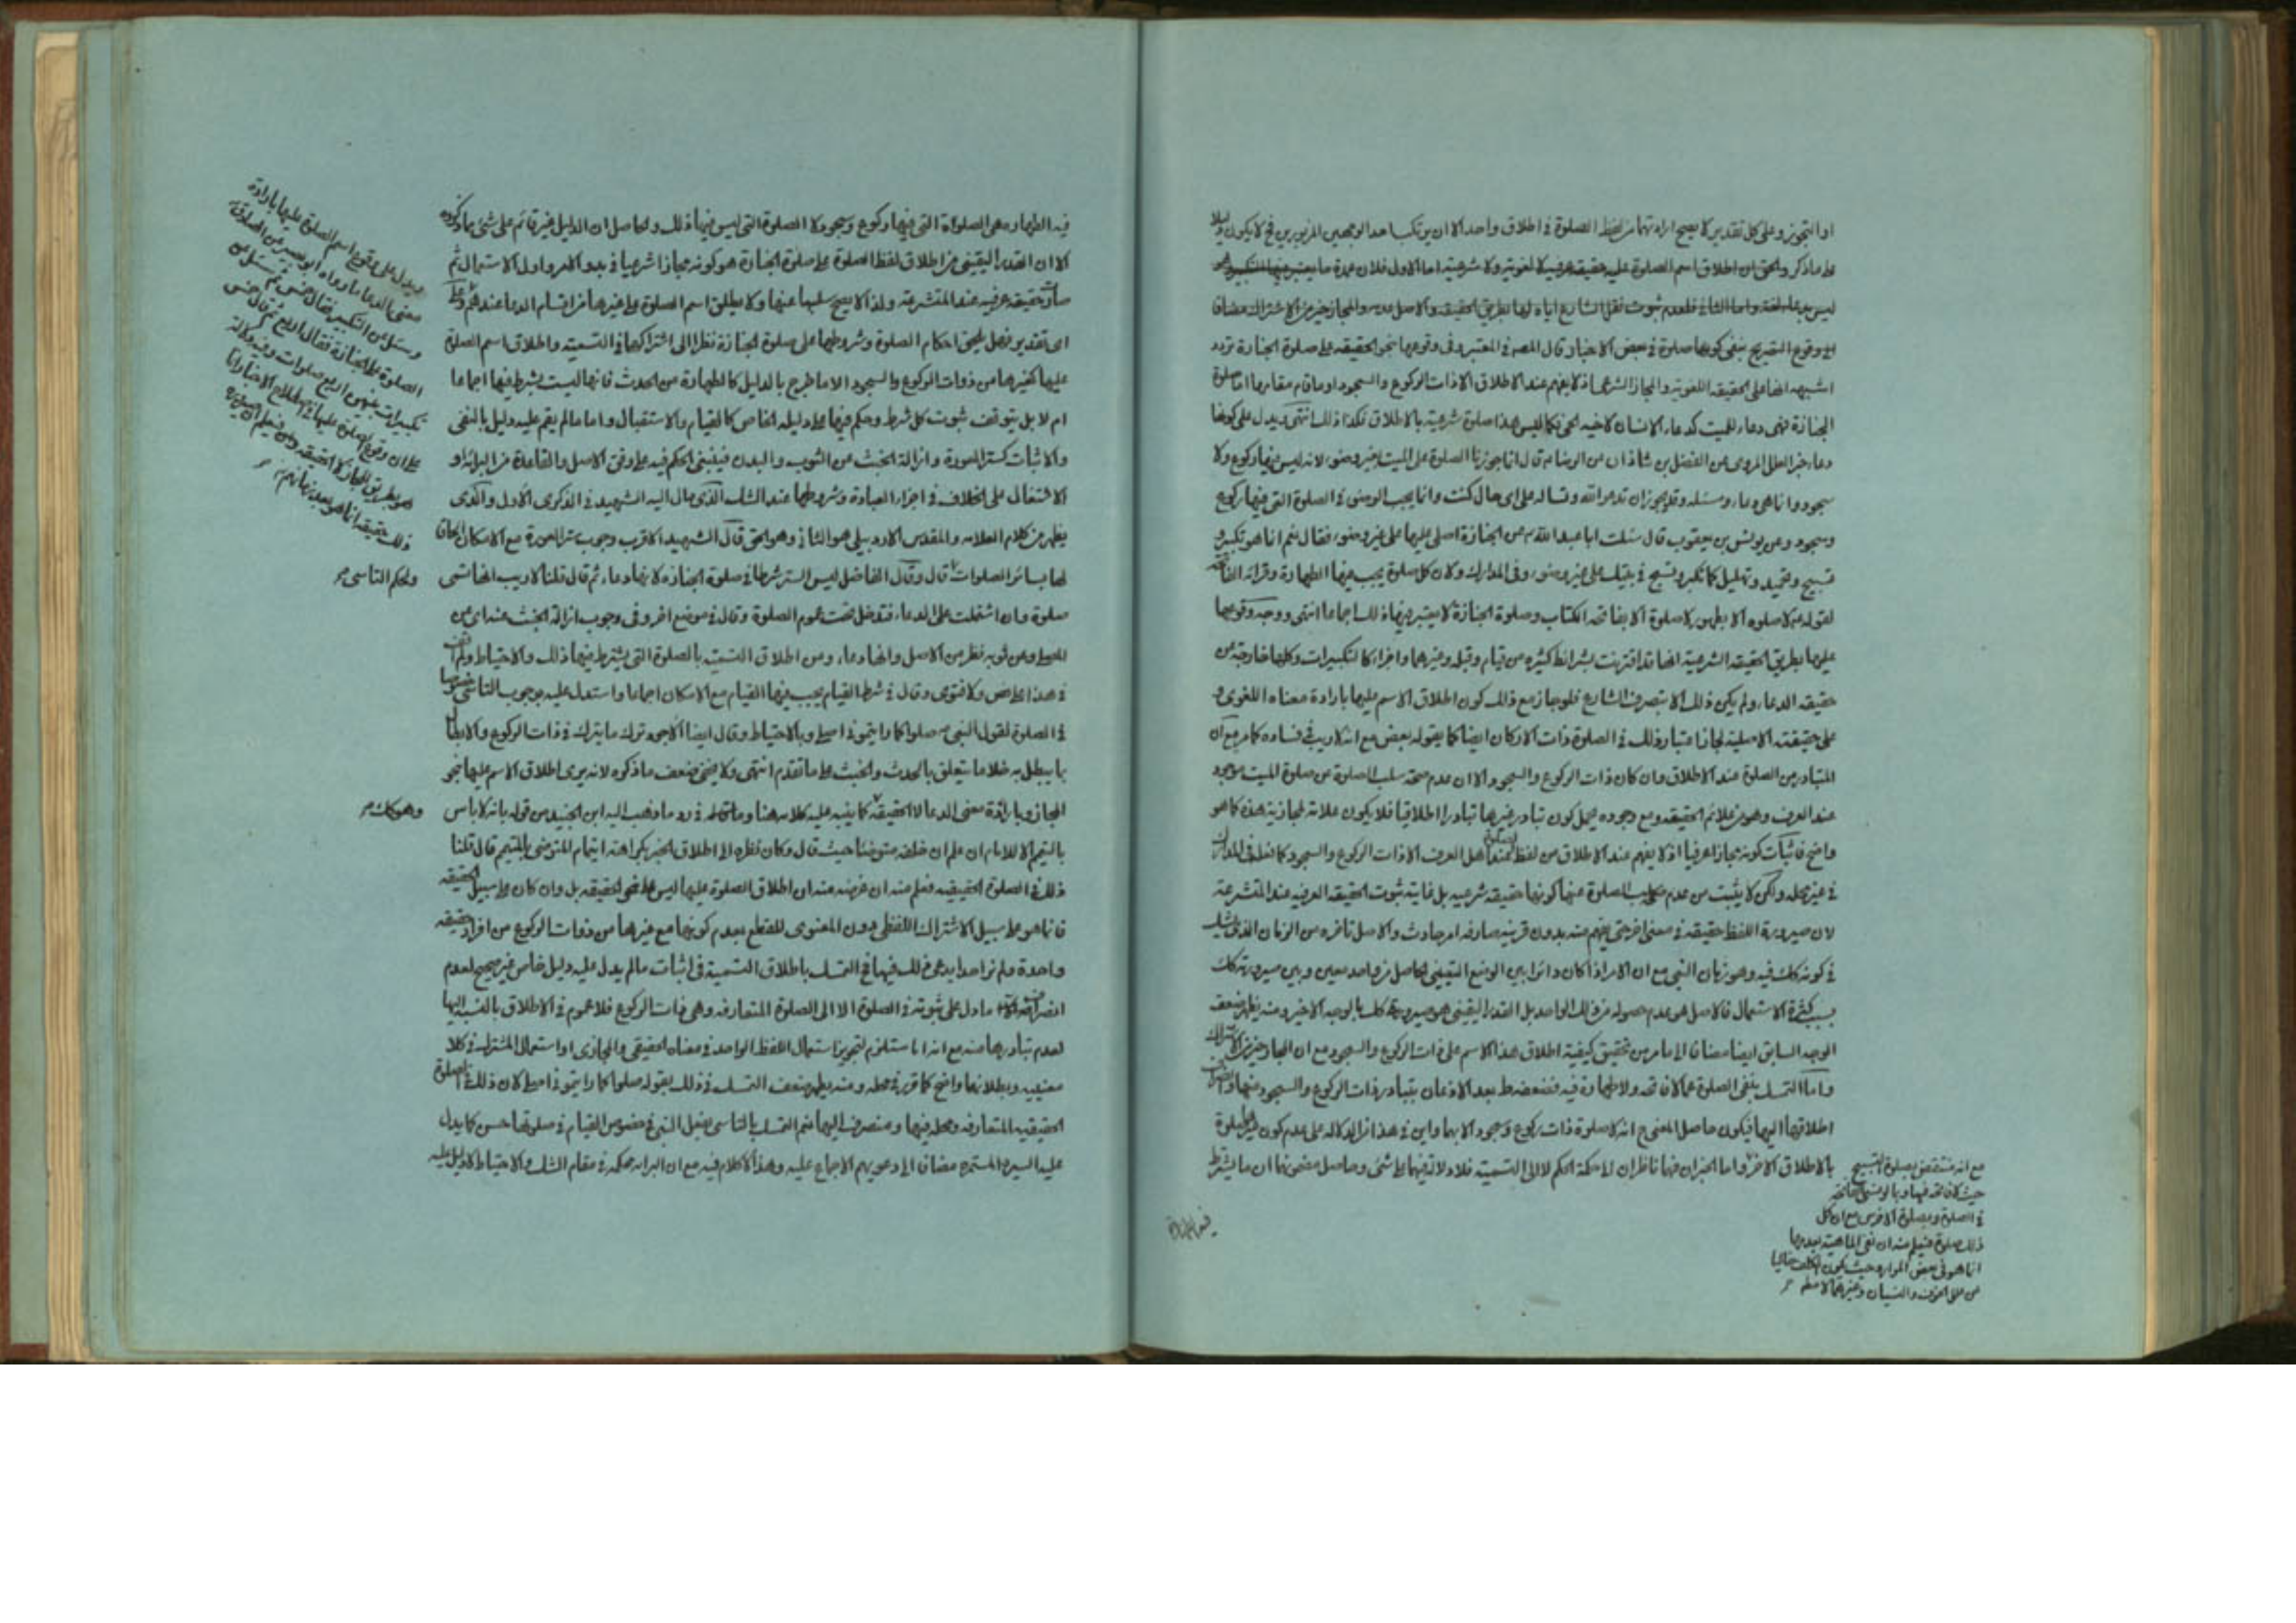 او التجوز وعلى كل تقدير لا يصح ارادتهما من لفظ الصلوة في اطلاق واحد الا ان يرتكب احد الوجهين المزبورين فح لا يكون دليلا
على ما ذكر والحق ان اطلاق اسم الصلوة عليه حقيقة عرفية لا لغوية ولا شرعية اما الاول فلان عمدة ما يعتبر فيها التكبير وهو
ليس بدعاء لغة واما الثاني فلعدم ثبوت نقل الشارع اياه لها بطريق الحقيقة والاصل عدمه والمجاز خير من الاشتراك مضافا
الى وقوع التصريح بنفي كونها صلوة في بعض الاخبار قال المصنف في المعتبر وفي وقوعها بنحو الحقيقة على صلوة الجنازة تردد
اشبهه انها على الحقيقة اللغوية والمجاز الشرعي اذ لا يفهم عند الاطلاق الا ذات الركوع والسجود او ما قام مقامهما اما صلوة
الجنازة فهي دعاء للميت كدعاء الانسان لاخيه الحي فكما ليس هذا صلوة شرعية بالاطلاق فكذا ذلك انتهى ويدل على كونها
دعاء خبر العلل المروي عن الفضل بن شاذان عن الرضا ع قال انما جوزنا الصلوة على الميت بغير وضوء لانه ليس فيها ركوع ولا
سجود وانما هي دعاء ومسئلة وقد يجوز ان تدعو الله وتسأله على اي حال كنت وانما يجب الوضوء في الصلوة التي فيها ركوع
وسجود وعن يونس بن يعقوب قال سئلت ابا عبد الله ع عن الجنازة اصلي عليها على غير وضوء فقال نعم انما هو تكبير و
تسبيح وتحميد وتهليل كما تكبر وتسبح في بيتك على غير وضوء وفي المدارك ولان كل صلوة يجب فيها الطهارة وقرائة الفاتحة
لقوله ع لا صلوة الا بطهور لا صلوة الا بفاتحة الكتاب وصلوة الجنازة لا يعتبر فيها ذلك اجماعا انتهى ووجه وقوعها
عليها بطريق الحقيقة الشرعية انها قد اقترنت بشرائط كثيرة من قيام وقبلة وغيرهما واجزاء كالتكبيرات وكلها خارجة عن
حقيقة الدعاء ولم يكن ذلك الا بتصرف الشارع فلو جاز مع ذلك كون اطلاق الاسم عليها بارادة معناه اللغوي و
على حقيقته الاصلية لجاز اعتبار ذلك في الصلوة ذات الاركان ايضا كما يقوله بعض مع انه لا ريب في فساده كما مر مع ان
المتبادر من الصلوة عند الاطلاق وان كان ذات الركوع والسجود الا ان عدم صحة سلب الصلوة عن صلوة الميت موجود
عند العرف وهو من علائم الحقيقة ومع وجوده يحمل كون تبادر غيرها تبادرا اطلاقيا فلا يكون علامة لمجازية هذه كما هو
واضح فاثبات كونه مجازا عرفيا اذ لا يفهم عند الاطلاق من لفظ الصلوة عند اهل العرف الا ذات الركوع والسجود كما فعله في المدارك
في غير محله ولكن لا يثبت من عدم صحة سلب الصلوة عنها كونها حقيقة شرعية بل غايته ثبوت الحقيقة العرفية عند المتشرعة
لان صيرورة اللفظ حقيقة في معنى اخر حتى يفهم منه بدون قرينة صارفة امر حادث والاصل تاخره عن الزمان الذي يشك
في كونه كك فيه وهو زمان النبي مع ان الامر اذا كان دائرا بين الوضع التعييني الحاصل من واحد معين وبين صيرورته كك
بسبب كثرة الاستعمال فالاصل هو عدم حصوله من ذلك الواحد بل القدر اليقيني هو صيرورته كك بالوجه الاخير ومنه يظهر ضعف
الوجه السابق ايضا مضافا الى ما مر من تحقيق كيفية اطلاق هذا الاسم على ذات الركوع والسجود مع ان المجاز خير من الاشتراك
واما التمسك بنفي الصلوة عما لا فاتحة ولا طهارة فيه فضعفه ظ بعد الاذعان بتبادر ذات الركوع والسجود منها وانصراف
اطلاقها اليها فيكون حاصل المعنى ح انه لا صلوة ذات ركوع وسجود الا بهما واين في هذا من الدلالة على عدم كون غيرها صلوة
بالاطلاق الاخر واما الخبران فهما ناظران الى حكمة الحكم لا الى التسمية فلا دلالة فيهما على شئ وحاصل مضمونهما ان ما يشترط
مع انه منتقض بصلوة التسبيح
حيث لا فاتحة فيها وبالوضوء
في الصلوة وبصلوة الاخرس مع ان كل
ذلك صلوة فيعلم منه ان نفي الماهية بعدمها
انما هو في بعض الموارد حيث يكون المكلف خاليا
عن مثل الخوف والنسيان وغيرهما لا مطلقا
فيه الطهارة
فيه الطهارة هي الصلوة التي فيها ركوع وسجود لا الصلوة التي ليس فيها ذلك والحاصل ان الدليل غير قائم على شئ مما ذكروه
الا ان القدر اليقيني من اطلاق لفظ الصلوة على صلوة الجنازة هو كونه مجازا شرعيا في بدو الامر واول الاستعمال ثم
صارت حقيقة عرفية عند المتشرعة ولذا لا يصح سلبها عنها ولا يطلق اسم الصلوة على غيرها من اقسام الدعاء عندهم وعلى
اي تقدير فهل يلحق احكام الصلوة وشروطها على صلوة الجنازة نظرا الى اشتراكها في التسمية واطلاق اسم الصلوة
عليها كغيرها من ذوات الركوع والسجود الا ما خرج بالدليل كالطهارة من الحدث فانها ليست بشرط فيها اجماعا
ام لا بل يتوقف ثبوت كل شرط وحكم فيها على دليله الخاص كالقيام والاستقبال واما ما لم يقم عليه دليل بالنفي
والاثبات كستر العورة وازالة الخبث عن الثوب والبدن فيبنى الحكم فيه على وفق الاصل والقاعدة من البرائة او
الاشتغال على الخلاف في اجزاء العبادة وشروطها عند الشك الذي مال اليه الشهيد في الذكرى الاول والذي
يظهر من كلام العلامة والمقدس الاردبيلي هو الثاني وهو الحق قال الشهيد الاقرب وجوب ستر العورة مع الامكان الحاقا
لها بسائر الصلوات قال وقال الفاضل ليس الستر شرطا في صلوة الجنازة لانها دعاء ثم قال قلنا لا ريب انها تسمى
صلوة وان اشتملت على الدعاء فتدخل تحت عموم الصلوة وقال في موضع اخر وفي وجوب ازالة الخبث عنه اي عن
المصلي وعن ثوبه نظر من الاصل وانها دعاء ومن اطلاق التسمية بالصلوة التي يشترط فيها ذلك والاحتياط ولم اقف
في هذا على نص ولا فتوى وقال في شرط القيام يجب فيها القيام مع الامكان اجماعا واستدل عليه بوجوب التاسي خصوصا
في الصلوة لقول النبي ص صلوا كما رايتموني اصلي وبالاحتياط وقال ايضا الاجود ترك ما يترك في ذات الركوع والابطال
بما يبطل به خلا ما يتعلق بالحدث والخبث على ما تقدم انتهى ولا يخفى ضعف ما ذكره لانه يرى اطلاق الاسم عليها بنحو
المجاز وبارادة معنى الدعاء لا الحقيقة كما ينبه عليه كلامه هنا وما قاله في رد ما ذهب اليه ابن الجنيد من قوله بانه لا باس
بالتيمم الا للامام ان علم ان خلفه متوضئا حيث قال وكان نظره الى اطلاق الخبر بكراهة ايتمام المتوضي بالمتيمم قال قلنا
ذلك في الصلوة الحقيقية فعلم منه ان غرضه عنه ان اطلاق الصلوة عليها ليس على نحو الحقيقة بل وان كان على سبيل الحقيقة
فانما هو على سبيل الاشتراك اللفظي دون المعنوي للقطع بعدم كونها مع غيرها من ذوات الركوع من افراد حقيقة
واحدة ولم نر احدا يدعي ذلك فيها فح التمسك باطلاق التسمية في اثبات ما لم يدل عليه دليل خاص غير صحيح لعدم
انصراف ما دل على ثبوته في الصلوة الا الى الصلوة المتعارفة وهي ذات الركوع فلا عموم في الاطلاق بالنسبة اليها
لعدم تبادرها منه مع انه انما يستلزم تجويز استعمال اللفظ الواحد في معناه الحقيقي والمجازي او استعمال المشترك في كلا
معنييه وبطلانهما واضح كما قرر في محله ومنه يظهر ضعف التمسك في ذلك بقوله صلوا كما رايتموني اصلي لان ذلك في الصلوة
الحقيقية المتعارفة ومحله فيها ومنصرف اليها نعم التمسك بالتاسي بفعل النبي في خصوص القيام في صلوتها حسن كما يدل
عليه السيرة المستمرة مضافا الى دعويهم الاجماع عليه وهذا لا كلام فيه مع ان البرائة محكمة في مقام الشك والاحتياط لا دليل عليه
ويدل على وقوع اسم الصلوة عليها بارادة
معنى الدعاء ما رواه ابو بصير عن الصادق ع
وسئل عن التكبير فقال خمس ثم سئل عن
الصلوة على الجنازة فقال اربع ثم قال خمس
تكبيرات بينهن اربع صلوات وفيه دلالة
على ان وقوع الصلوة عليها في اطلاق الاخبار انما
هو بطريق المجاز لا الحقيقة
ذلك حقيقة انما هو بعد زمانهم
ولحكم التاسي
وهو كك